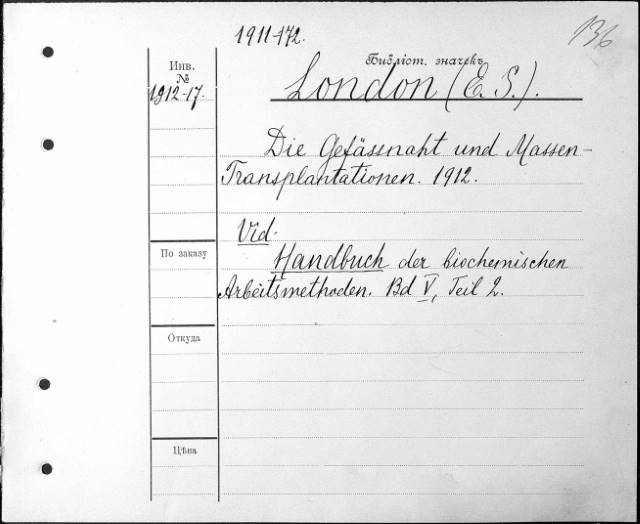 1911-172.
136
Библіот. значекъ
Инв.
№
1912-17.
London (E. S.).
Die Gefässnaht und Massen-
Transplantationen. 1912.
Vid.
Handbuch der biochemischen
Arbeitsmethoden. Bd V, Teil 2.
По заказу
Откуда
Цѣна